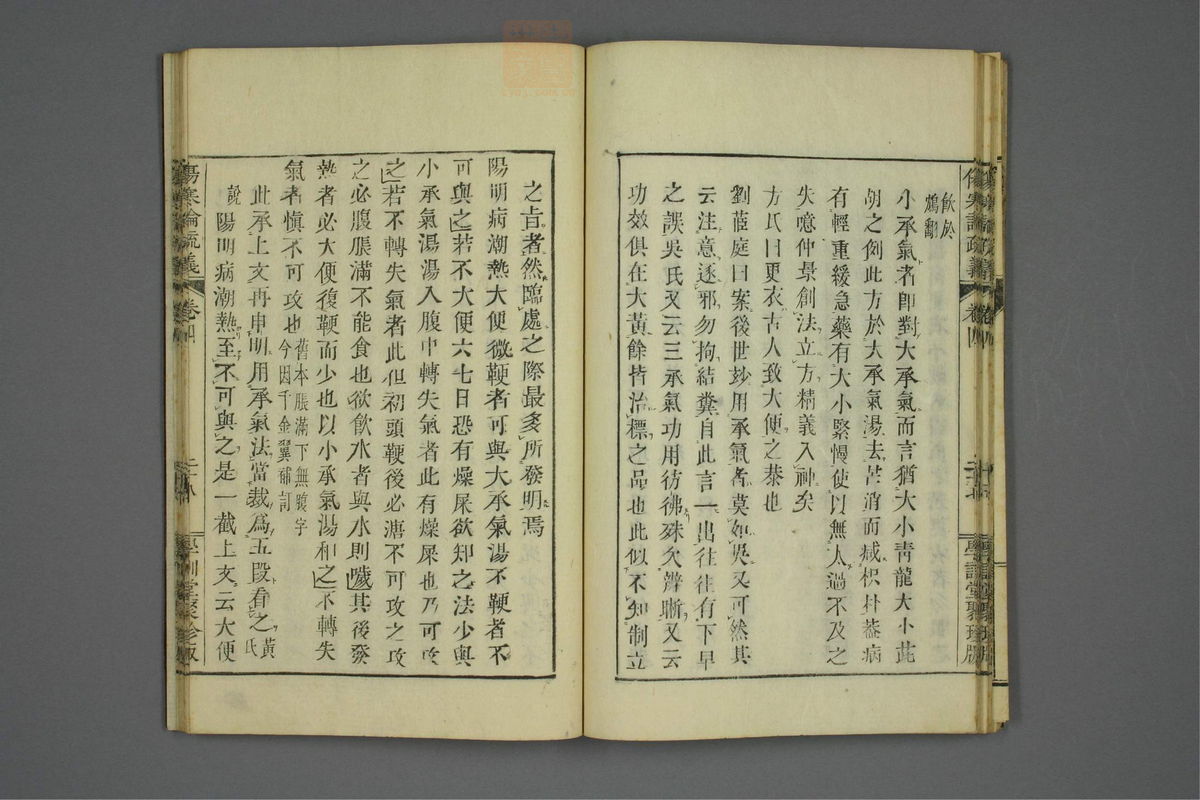 飲於
鷓鷀
小承氣者即對大承氣而言猶大小青龍大小茈
胡之例此方於大承氣湯去芒消而減枳朴葢病
有輕重緩急藥有大小緊慢使以無太過不及之
失噫仲景創法立方精義入神矣
方氏曰更衣古人致大便之恭也
劉茝庭曰案後世玅用承氣者莫如吳又可然其
云注意逐邪勿拘結糞自此言一出往往有下早
之誤吳氏又云三承氣功用彷彿殊欠辨晰又云
功效俱在大黃餘皆治標之品也此似不知制立
之旨者然臨處之際最多所發明焉
陽明病潮熱大便微鞕者可與大承氣湯不鞕者不
可與之若不大便六七日恐有燥屎欲知之法少與
小承氣湯湯入腹中轉失氣者此有燥屎也乃可攻
之若不轉失氣者此但初頭鞕後必溏不可攻之攻
之必腹脹滿不能食也欲飲水者與水則噦其後發
熱者必大便復鞕而少也以小承氣湯和之不轉失
氣者慎不可攻也舊本脹滿下無腹字
今因千金翼補訂
此承上文再申明用承氣法當裁為五段看之黃氏
說陽明病潮熱至不可與之是一截上文云大便
傷寒論疏義 卷四 二十八 學訓堂聚珍版